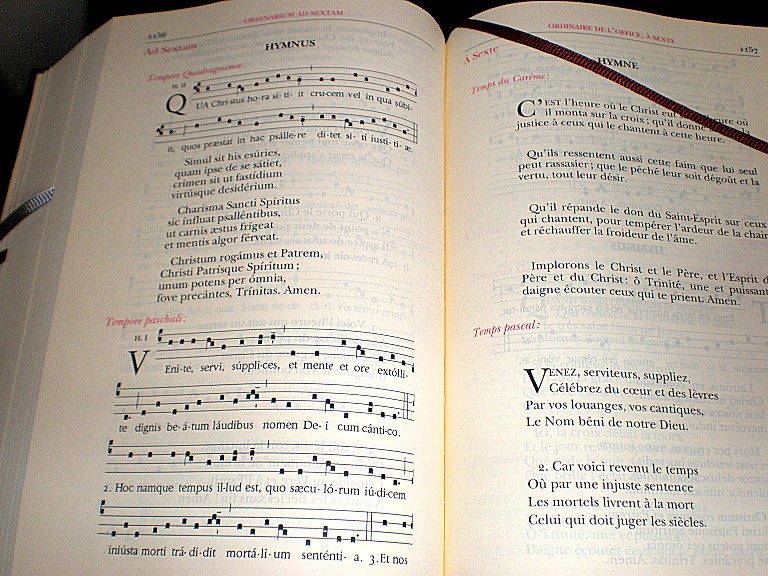 1156
ORDINARIUM AD SEXTAM
Ad Sextam
HYMNUS
Tempore Quadragesimæ:
H. II
QUA Christus ho-ra sí-ti-it crucem vel in qua súbi-
it, quos præstat in hac psálle-re di-tet si-ti iustí-ti-æ.
Simul sit his esúries,
quam ipse de se sátiet,
crimen sit ut fastídium
virtúsque desidérium.
Charisma Sancti Spíritus
sic ínfluat psalléntibus,
ut carnis æstus frígeat
et mentis algor férveat.
Christum rogámus et Patrem,
Christi Patrísque Spíritum;
unum potens per ómnia,
fove precántes, Trínitas. Amen.
Tempore paschali:
H. I
VEni-te, servi, súppli-ces, et mente et ore extólli-
te dignis be-á-tum láudibus nomen De-i cum cánti-co.
2. Hoc namque tempus il-lud est, quo sæcu-ló-rum iú-dicem
iniústa morti trá-di-dit mortá-li-um senténti-a. 3. Et nos
ORDINAIRE DE L'OFFICE, À SEXTE
1157
À Sexte
HYMNE
Temps du Carême:
C'EST l'heure où le Christ eut heure où
il monta sur la croix; qu'il donne la
justice à ceux qui le chantent à cette heure.
Qu'ils ressentent aussi cette faim que lui seul
peut rassasier; que le péché leur soit dégoût et la
vertu, tout leur désir.
Qu'il répande le don du Saint-Esprit sur ceux
qui chantent, pour tempérer l'ardeur de la chair
et réchauffer la froideur de l'âme.
Implorons le Christ et le Père, et l'Esprit d
Père et du Christ: ô Trinité, une et puissant
daigne écouter ceux qui te prient. Amen.
Temps pascal:
VENEZ, serviteurs, suppliez,
Célébrez du cœur et des lèvres
Par vos louanges, vos cantiques,
Le Nom béni de notre Dieu.
2. Car voici revenu le temps
Où par une injuste sentence
Les mortels livrent à la mort
Celui qui doit juger les siècles.